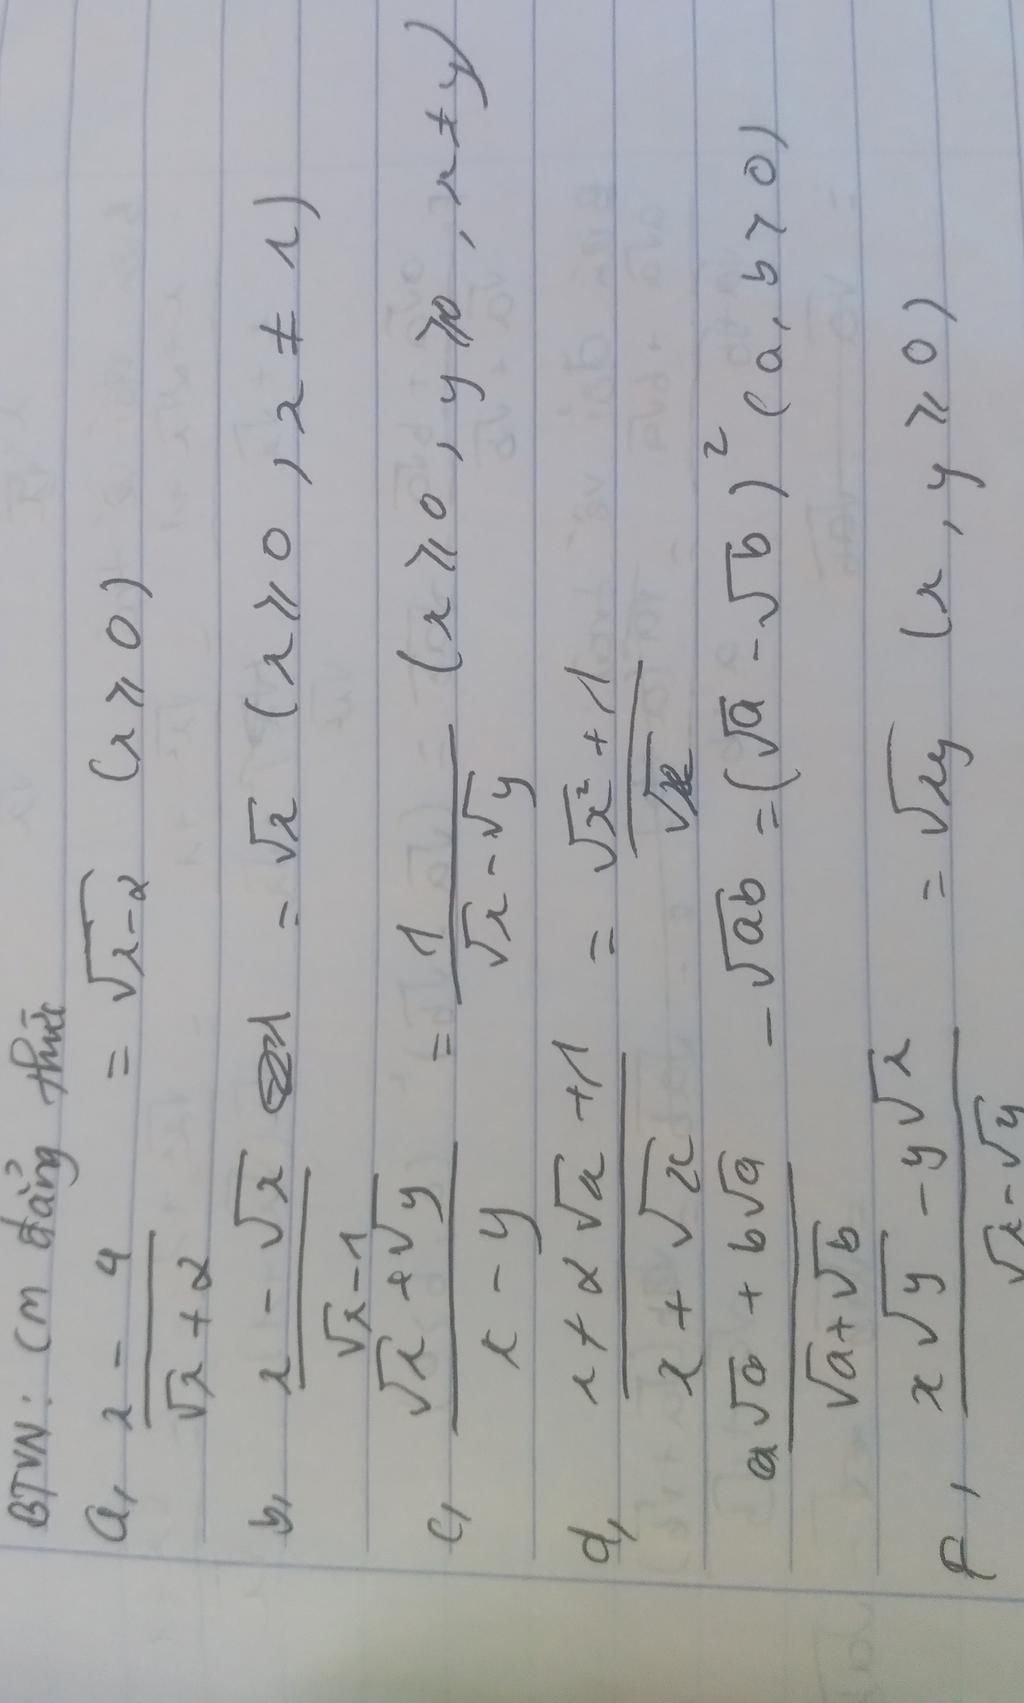 BTVN: Cm đẳng thức
a, (x - 4)/(√x + 2) = √x-2 (x ≥ 0)
b, (x - √x)/(√x - 1) = √x (x ≥ 0, x ≠ 1)
c, (√x + √y)/(x - y) = 1/(√x - √y) (x ≥ 0, y ≥ 0, x ≠ y)
d, (x + 2√x + 1)/(x + √x) = (√x² + 1)/√x
(a√a + b√a)/(√a + √b) - √ab = (√a - √b)² (a, b > 0)
f, (x√y - y√x)/(√x - √y) = √xy (x, y ≥ 0)